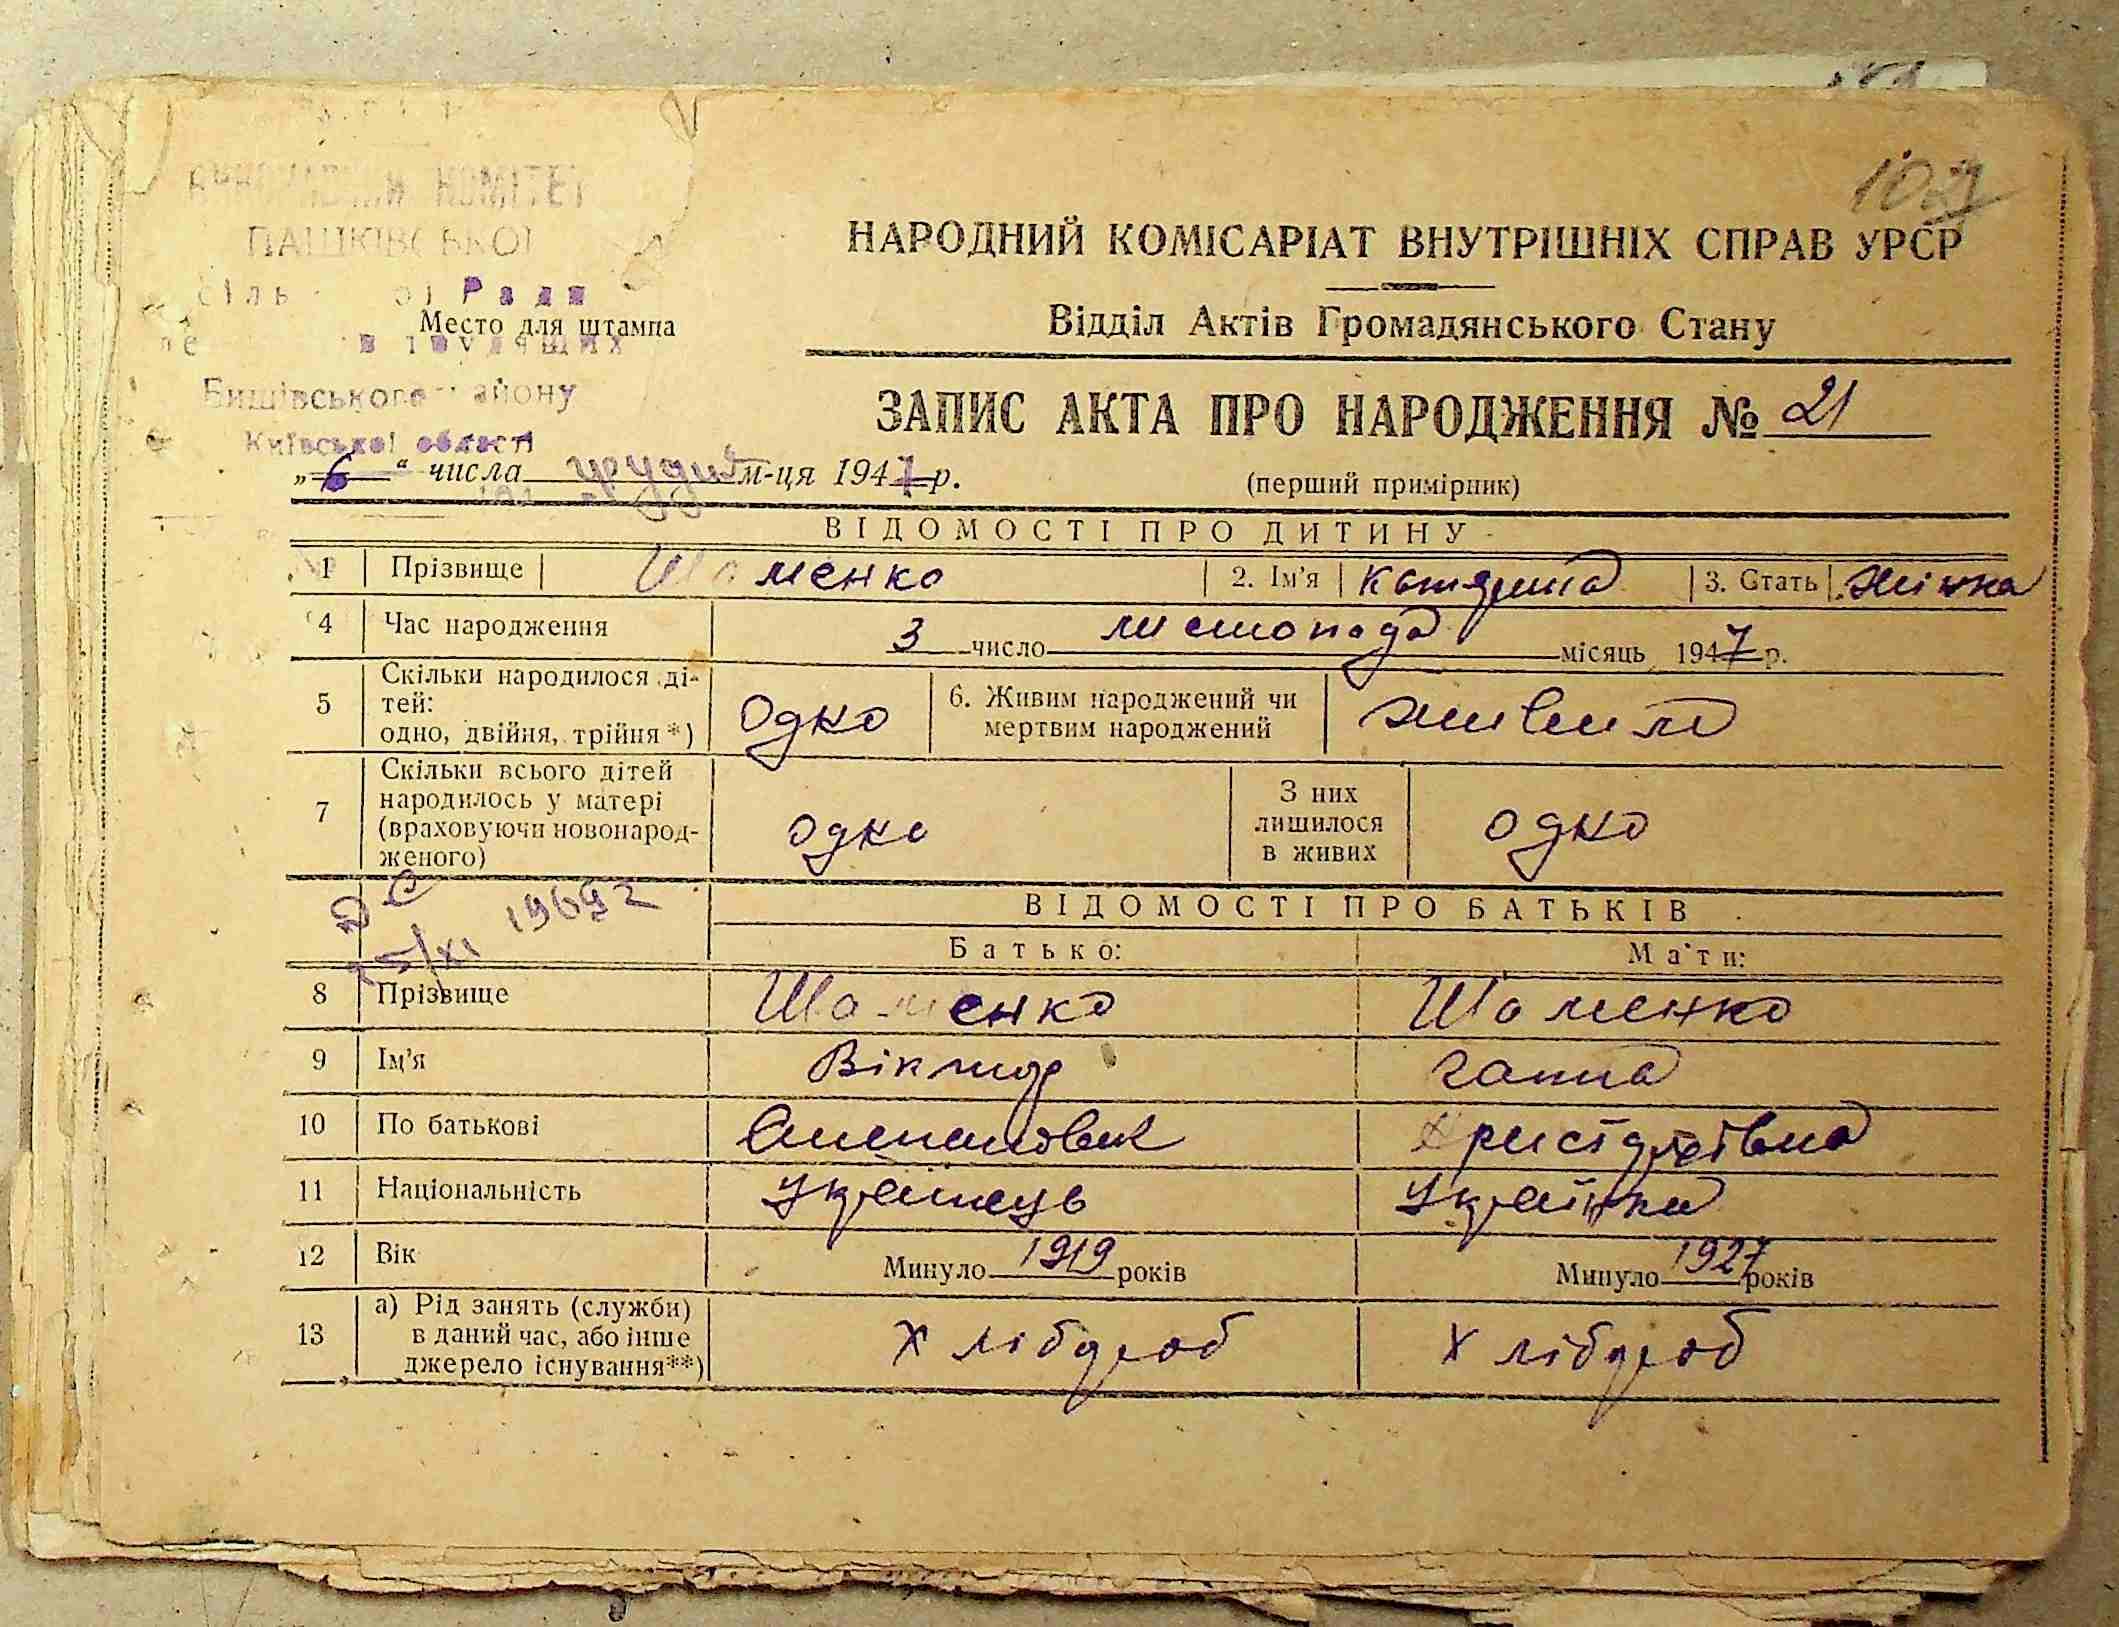 КОМІТЕТ
ПАШКІВСЬКОЇ
Ради
Место для штампа
Бишівського району
Київської області
„6“ числа грудня м-ця 1947 р.
НАРОДНИЙ КОМІСАРІАТ ВНУТРІШНІХ СПРАВ УРСР
Відділ Актів Громадянського Стану
ЗАПИС АКТА ПРО НАРОДЖЕННЯ № 21
(перший примірник)
ВІДОМОСТІ ПРО ДИТИНУ
1 Прізвище Шаменко 2. Ім'я Катярина 3. Стать жінка
4 Час народження 3 число листопада місяць 1947 р.
5 Скільки народилося ді-
тей:
одно, двійня, трійня*) одно
6. Живим народжений чи
мертвим народжений живим
7 Скільки всього дітей
народилось у матері
(враховуючи новонарод-
женого) одно
З них
лишилося
в живих одно
ВІДОМОСТІ ПРО БАТЬКІВ
Батько: Мати:
8 Прізвище Шаменко Шаменко
9 Ім'я Віктор Ганна
10 По батькові Степанович
11 Національність Українець Українка
12 Вік Минуло 1919 років Минуло 1927 років
13 а) Рід занять (служби)
в даний час, або інше
джерело існування**) Хлібороб Хлібороб